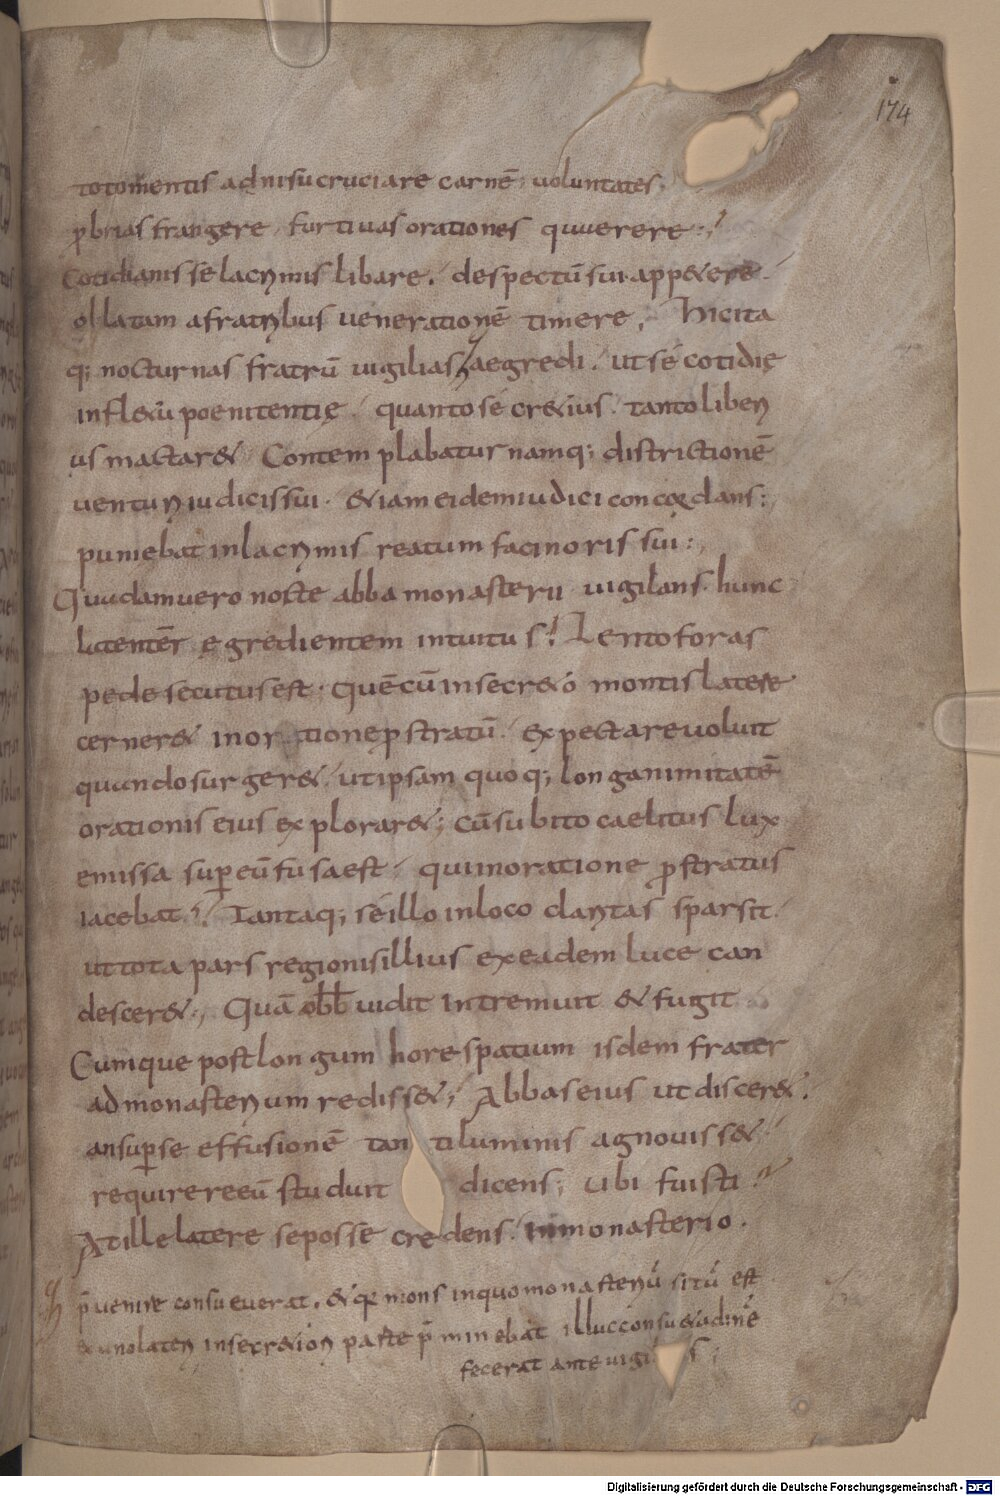 174
totomentis adnisu cruciare carnē; voluntates;
p̄brias frangere, furtivas orationes quaerere;
Cotidianis se lacrymis libare. despectū sui app&ere.
ollatam afratribus venerationē timere, Hic ita
q; nocturnas fratrū vigilias praegredi. ut se cotidię
infl&u poenitentię. quanto secr&ius. tanto liberi
us mactar&. Contemplabatur namq; districtionē
venturi iudicis sui. & iam eidem iudici concordans;
puniebat in lacrymis reatum facinoris sui;
Quadam vero nocte abba monasterii vigilans. hunc
latentēr ęgredientem intuitus; Lento foras
pede secutus est. quē cū in secr&o montis latere
cerner& in oratione pstratū. expectare voluit
quando surger&. ut ipsam quoq; longanimitatē
orationis eius explorar&; cū subito caelitus lux
emissa super eū fusa est. qui in oratione pstratus
iacebat; Tantaq; se illo in loco claritas sparsit.
ut tota pars regionis illius ex eadem luce can
descer&; Quā abb vidit intremuit & fugit
Cumque post longum horę spatium isdem frater
ad monasterium rediss&; Abbas eius ut discer&.
an super se effusionē tanti luminis agnoviss&
requirere eū studuit dicens; ubi fuisti?
At ille latere se posse credens. in monasterio.
p̄venire consueverat. & quia mons in quo monasteriū sitū est
ex uno latere in secr&iori parte p̄minebat illuc consu&udinē
fecerat ante vigilias;
Digitalisierung gefördert durch die Deutsche Forschungsgemeinschaft - DFG